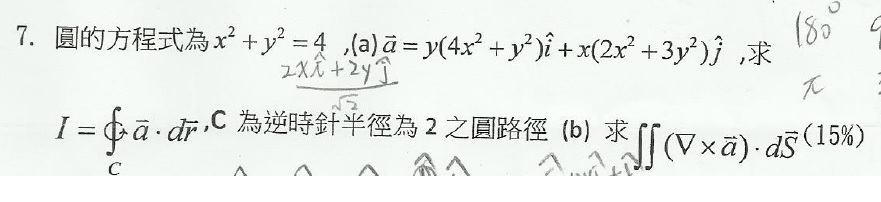 7. 圓的方程式為 x² + y² = 4 ,(a) a⃗ = y(4x² + y²)î + x(2x² + 3y²)ĵ ,求
180°
2xî + 2yĵ
√2
π
I = ∮_C a⃗ · dr⃗ , C 為逆時針半徑為 2 之圓路徑 (b) 求 ∬(∇ × a⃗) · dS⃗ (15%)